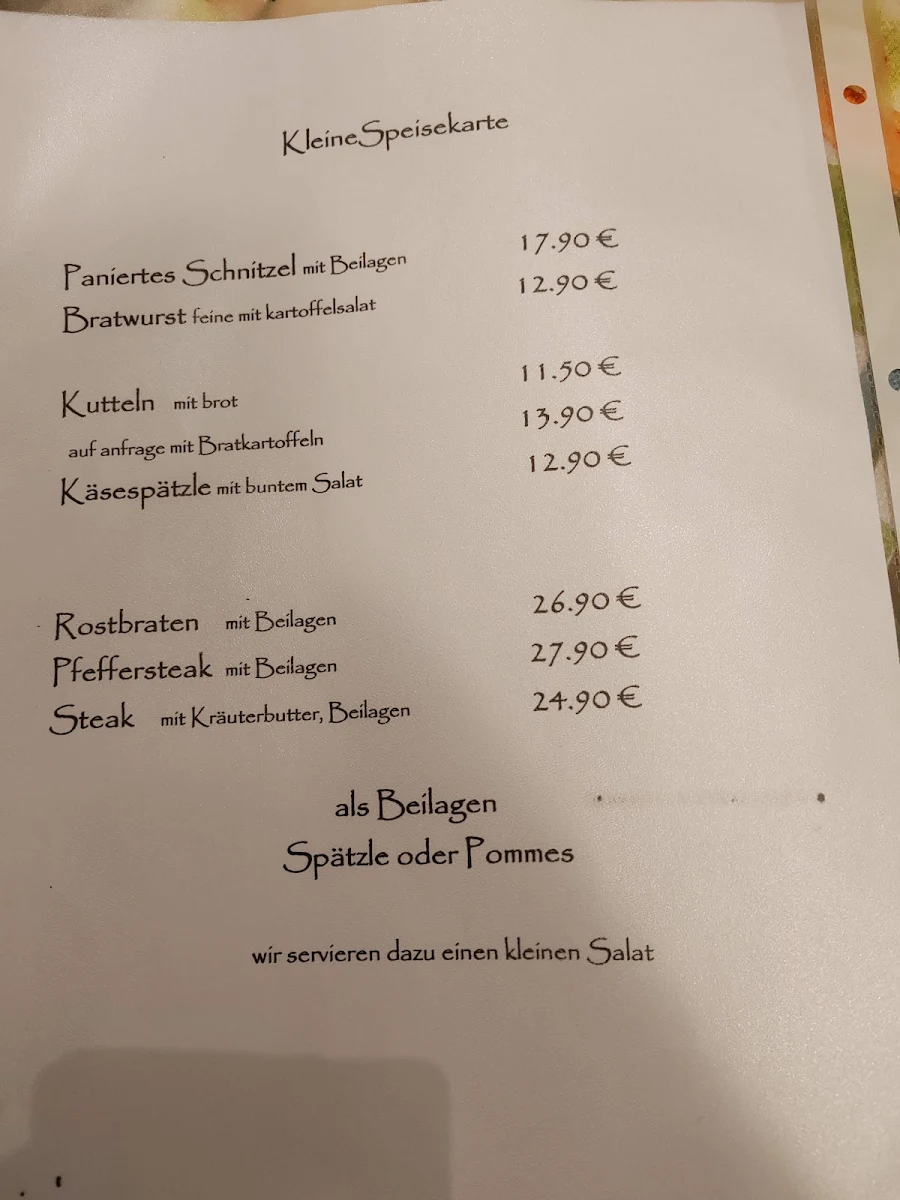 KleineSpeisekarte
Paniertes Schnitzel mit Beilagen 17.90 €
Bratwurst feine mit kartoffelsalat 12.90 €
Kutteln mit brot 11.50 €
auf anfrage mit Bratkartoffeln 13.90 €
Käsespätzle mit buntem Salat 12.90 €
Rostbraten mit Beilagen 26.90 €
Pfeffersteak mit Beilagen 27.90 €
Steak mit Kräuterbutter, Beilagen 24.90 €
als Beilagen
Spätzle oder Pommes
wir servieren dazu einen kleinen Salat